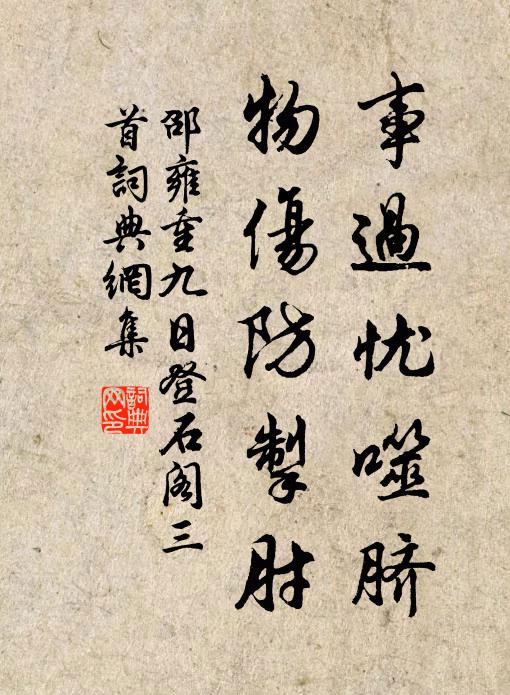 事過忧噬脐
物傷防掣肘
邵雍重九日登石阁三
首詞典網集
詞典
网印